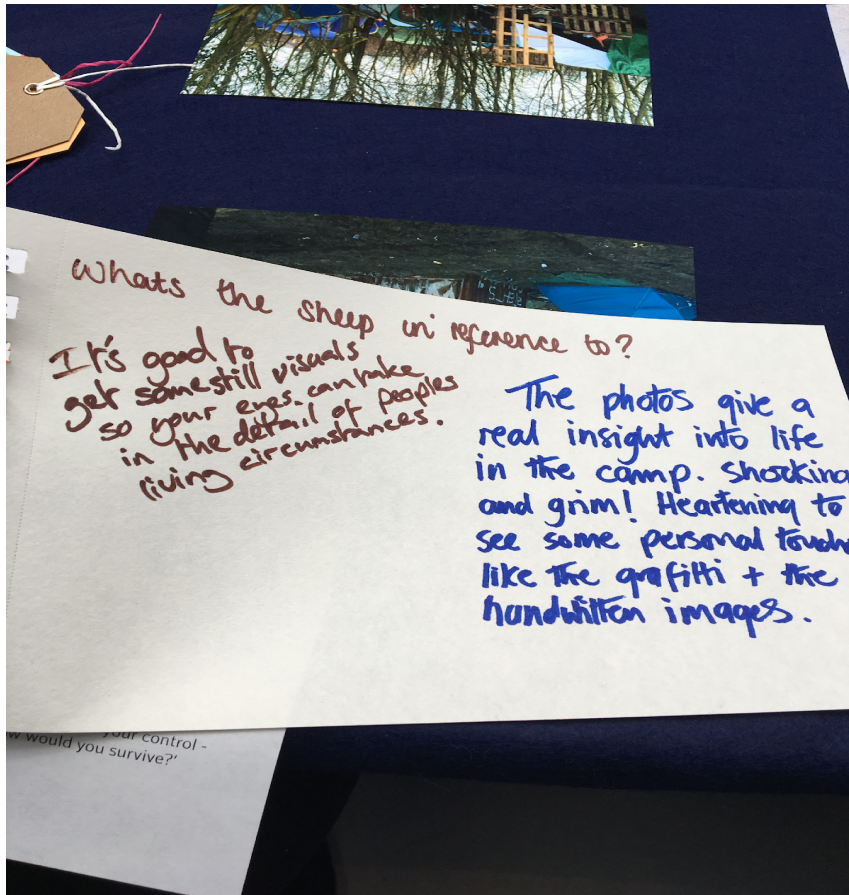 Whats the sheep in reference to?
It's good to
get some still visuals
so your eyes can take
in the detail of peoples
living circumstances.
The photos give a
real insight into life
in the camp. Shocking
and grim! Heartening to
see some personal touche
like the grafitti + the
handwritten images.
your control -
would you survive?'